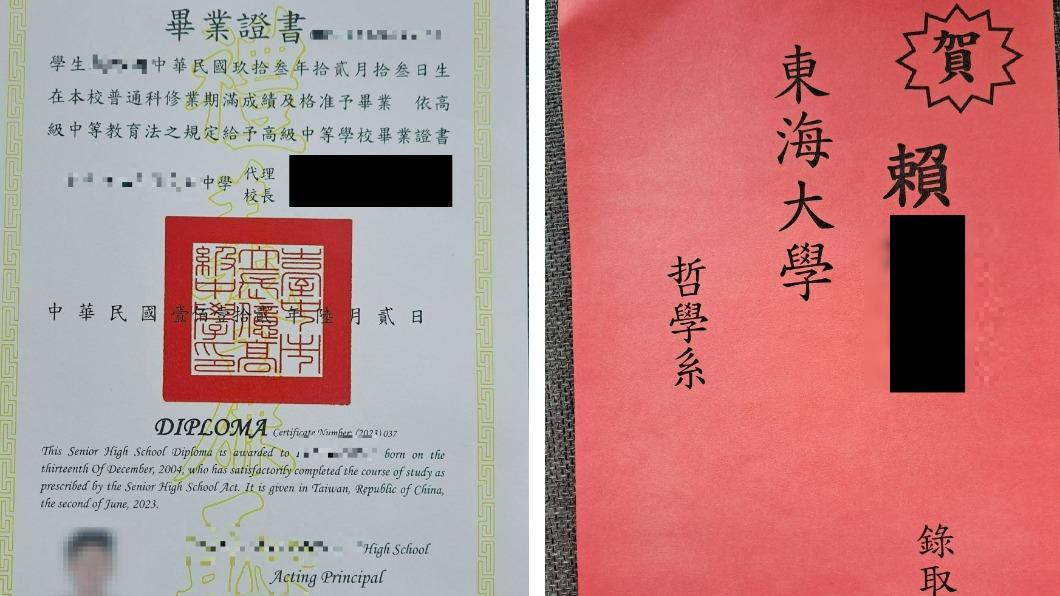 畢業證書
學生 中華民國玖拾叁年拾貳月拾叁日生
在本校普通科修業期滿成績及格准予畢業 依高
級中等教育法之規定給予高級中等學校畢業證書
中學 代理
校長
臺中市
立長億高
級中學印
中華民國壹佰壹拾貳年陸月貳日
DIPLOMA Certificate Number: (2023)037
This Senior High School Diploma is awarded to born on the
thirteenth Of December, 2004, who has satisfactorily completed the course of study as
prescribed by the Senior High School Act. It is given in Taiwan, Republic of China,
the second of June, 2023.
High School
Acting Principal
賀
賴
錄取
東海大學
哲學系